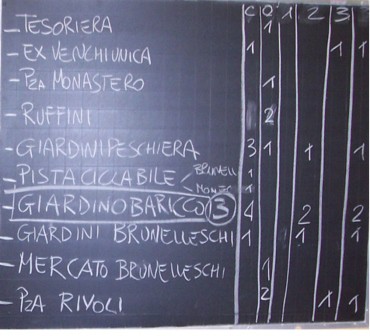 C 0 1 2 3
– TESORIERA 1
– EX VENCHIUNICA 1 1 1
– PZA MONASTERO 1
– RUFFINI 2
– GIARDINI PESCHIERA 3 1 1 1
– PISTA CICLABILE BRUNELL 1
MONTE 1
– GIARDINO BARICCO 3 4 2 2
– GIARDINI BRUNELLESCHI 1 1 1
– MERCATO BRUNELLESCHI 1
– PZA RIVOLI 2 1 1